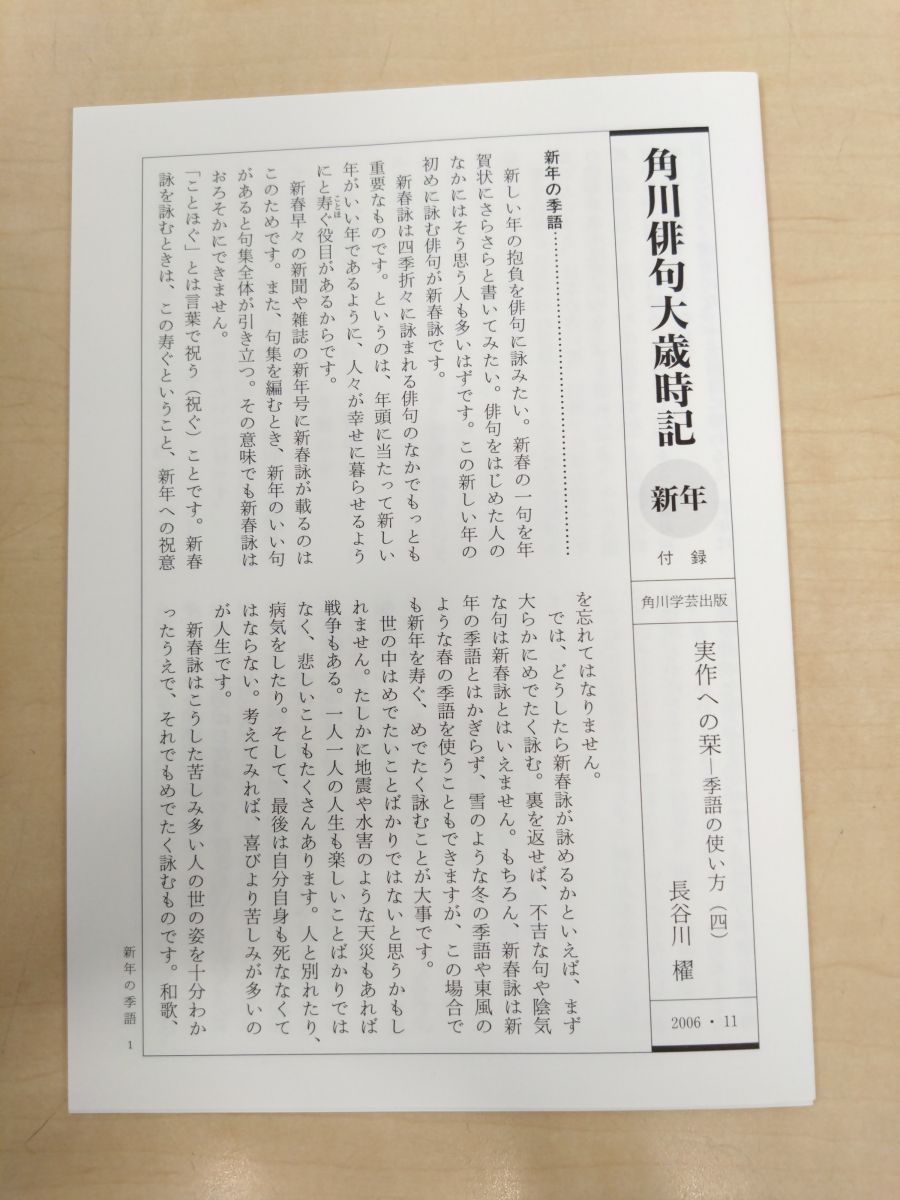 角川俳句大歳時記
新年
付録
角川学芸出版
実作への栞―季語の使い方（四）
長谷川 櫂
2006・11
新年の季語……………………………………
新しい年の抱負を俳句に詠みたい。新春の一句を年
賀状にさらさらと書いてみたい。俳句をはじめた人の
なかにはそう思う人も多いはずです。この新しい年の
初めに詠む俳句が新春詠です。
新春詠は四季折々に詠まれる俳句のなかでもっとも
重要なものです。というのは、年頭に当たって新しい
年がいい年であるように、人々が幸せに暮らせるよう
にと寿ぐ役目があるからです。
ことほ
新春早々の新聞や雑誌の新年号に新春詠が載るのは
このためです。また、句集を編むとき、新年のいい句
があると句集全体が引き立つ。その意味でも新春詠は
おろそかにできません。
「ことほぐ」とは言葉で祝う（祝ぐ）ことです。新春
詠を詠むときは、この寿ぐということ、新年への祝意
を忘れてはなりません。
では、どうしたら新春詠が詠めるかといえば、まず
大らかにめでたく詠む。裏を返せば、不吉な句や陰気
な句は新春詠とはいえません。もちろん、新春詠は新
年の季語とはかぎらず、雪のような冬の季語や東風の
ような春の季語を使うこともできますが、この場合で
も新年を寿ぐ、めでたく詠むことが大事です。
世の中はめでたいことばかりではないと思うかもし
れません。たしかに地震や水害のような天災もあれば
戦争もある。一人一人の人生も楽しいことばかりでは
なく、悲しいこともたくさんあります。人と別れたり、
病気をしたり。そして、最後は自分自身も死ななくて
はならない。考えてみれば、喜びより苦しみが多いの
が人生です。
新春詠はこうした苦しみ多い人の世の姿を十分わか
ったうえで、それでもめでたく詠むものです。和歌、
新年の季語 1